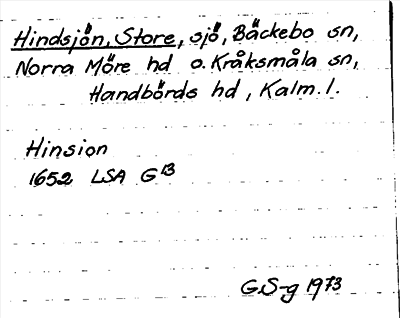 Hindsjön, Store, sjö, Bäckebo sn,
Norra Möre hd o. Kråksmåla sn,
Handbörds hd, Kalm. l.
Hinsion
1652 LSA G 13
G.S-g 1973